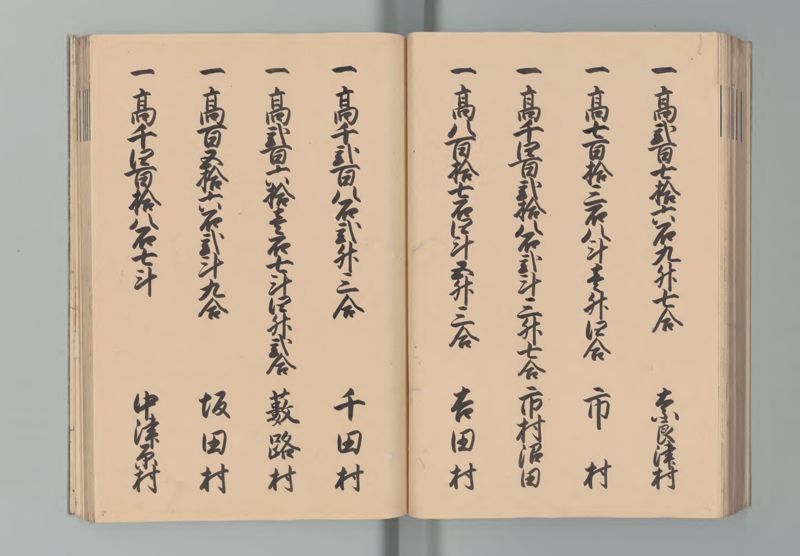 一 高弐百七拾六石九升七合 奈良津村
一 高七百拾二石八斗壱升四合 市村
一 高千四百弐拾八石弐斗三升七合 市村沼田
一 高八百拾七石四斗五升三合 吉田村
一 高千弐百八石弐升三合 千田村
一 高弐百六拾壱石七斗四升弐合 薮路村
一 高百五拾六石弐斗九合 坂田村
一 高千四百拾八石七斗 中津原村